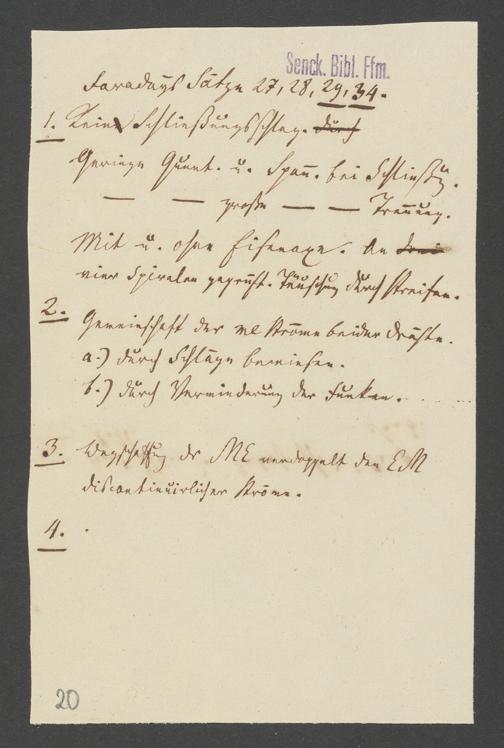 Senck. Bibl. Ffm.
Faradays Sätze 27, 28, 29, 34.
1. Kein Schließungsschlag. durch
Geringe Quant. u. Spañ. bei Schließg.
— — große — — Treñung.
Mit u. ohne Eisenaxe. An drei
vier Spiralen geprüft. Täuschung durch Streifen.
2. Gemeinschaft der me Ströme beider Drähte.
a.) durch Schläge bewiesen.
b.) durch Verminderung der Funken.
3. Wegschaffung der ME verdoppelt den EM
discontinuirlicher Ströme.
4. .
20